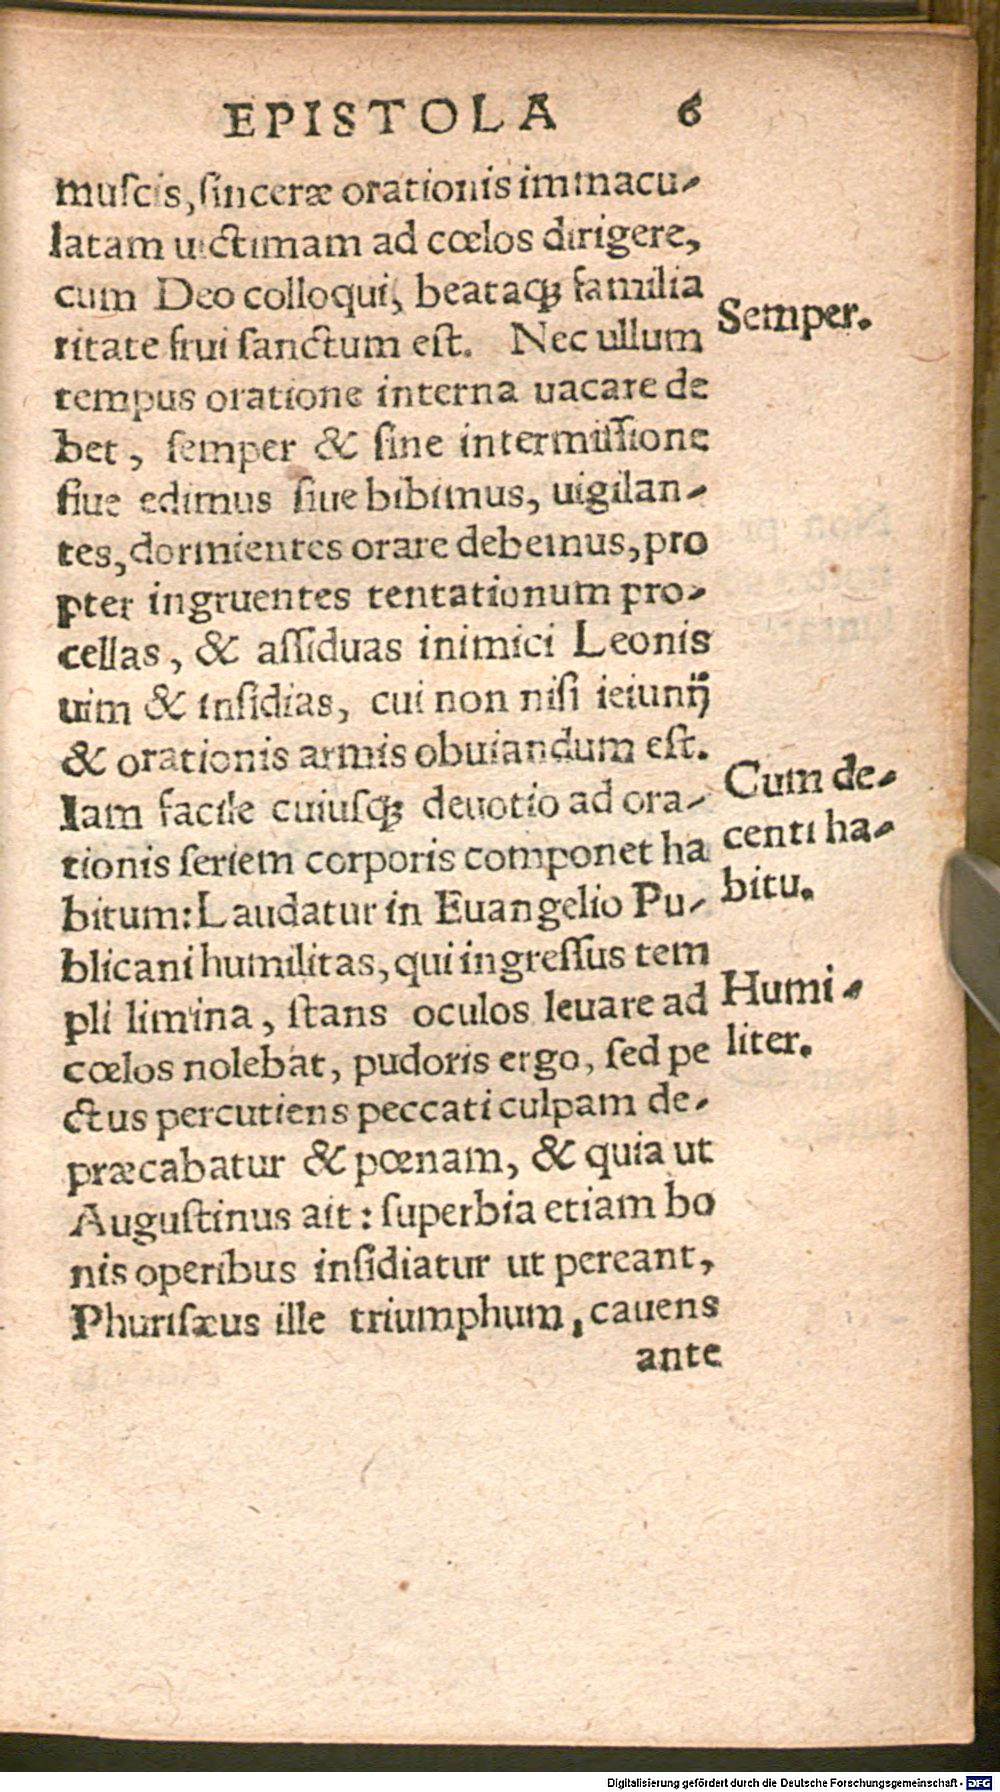 EPISTOLA 6
muſcis, ſinceræ orationis immacu-
latam uictimam ad cœlos dirigere,
cum Deo colloqui, beataqꝫ familia
ritate frui ſanctum eſt. Nec ullum
Semper.
tempus oratione interna uacare de
bet, ſemper & ſine intermiſſione
ſiue edimus ſiue bibimus, uigilan-
tes, dormientes orare debemus, pro
pter ingruentes tentationum pro-
cellas, & aſſiduas inimici Leonis
uim & inſidias, cui non niſi ieiunij
& orationis armis obuiandum eſt.
Iam facile cuiuſqꝫ deuotio ad ora-
Cum de-
tionis ſeriem corporis componet ha
centi ha-
bitum: Laudatur in Euangelio Pu-
bitu.
blicani humilitas, qui ingreſſus tem
pli limina, ſtans oculos leuare ad
Humi-
cœlos nolebat, pudoris ergo, ſed pe
liter.
ctus percutiens peccati culpam de-
præcabatur & pœnam, & quia ut
Auguſtinus ait: ſuperbia etiam bo
nis operibus inſidiatur ut pereant,
Phariſæus ille triumphum, cauens
ante
Digitalisierung gefördert durch die Deutsche Forschungsgemeinschaft - DFG